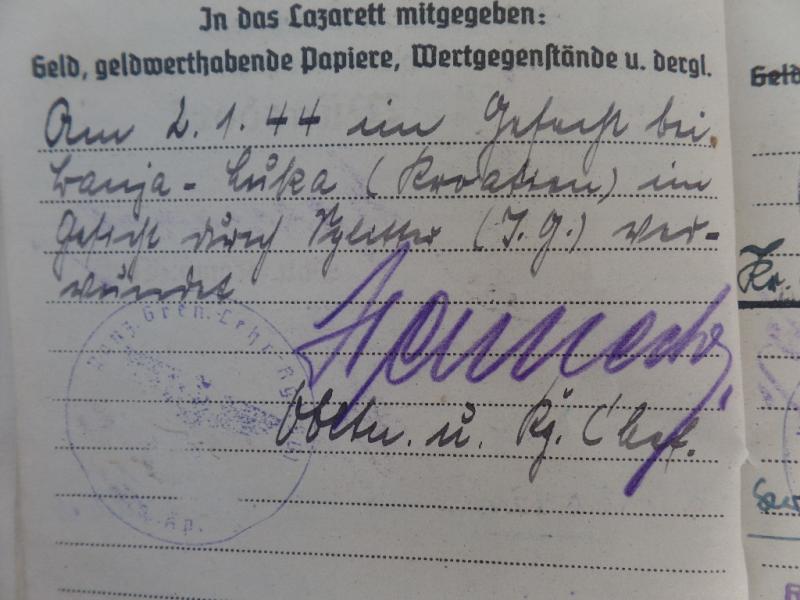 In das Lazarett mitgegeben:
Geld, geldwerthabende Papiere, Wertgegenstände u. dergl.
Am 2.1.44 im Gefecht bei
Banja-Luka (Kroatien) im
Gesicht durch Splitter (I.G.) ver-
wundet
Obltn. u. Kp. Chef.
Panz. Gren. Lehr Rgt.
Geld
Kr.